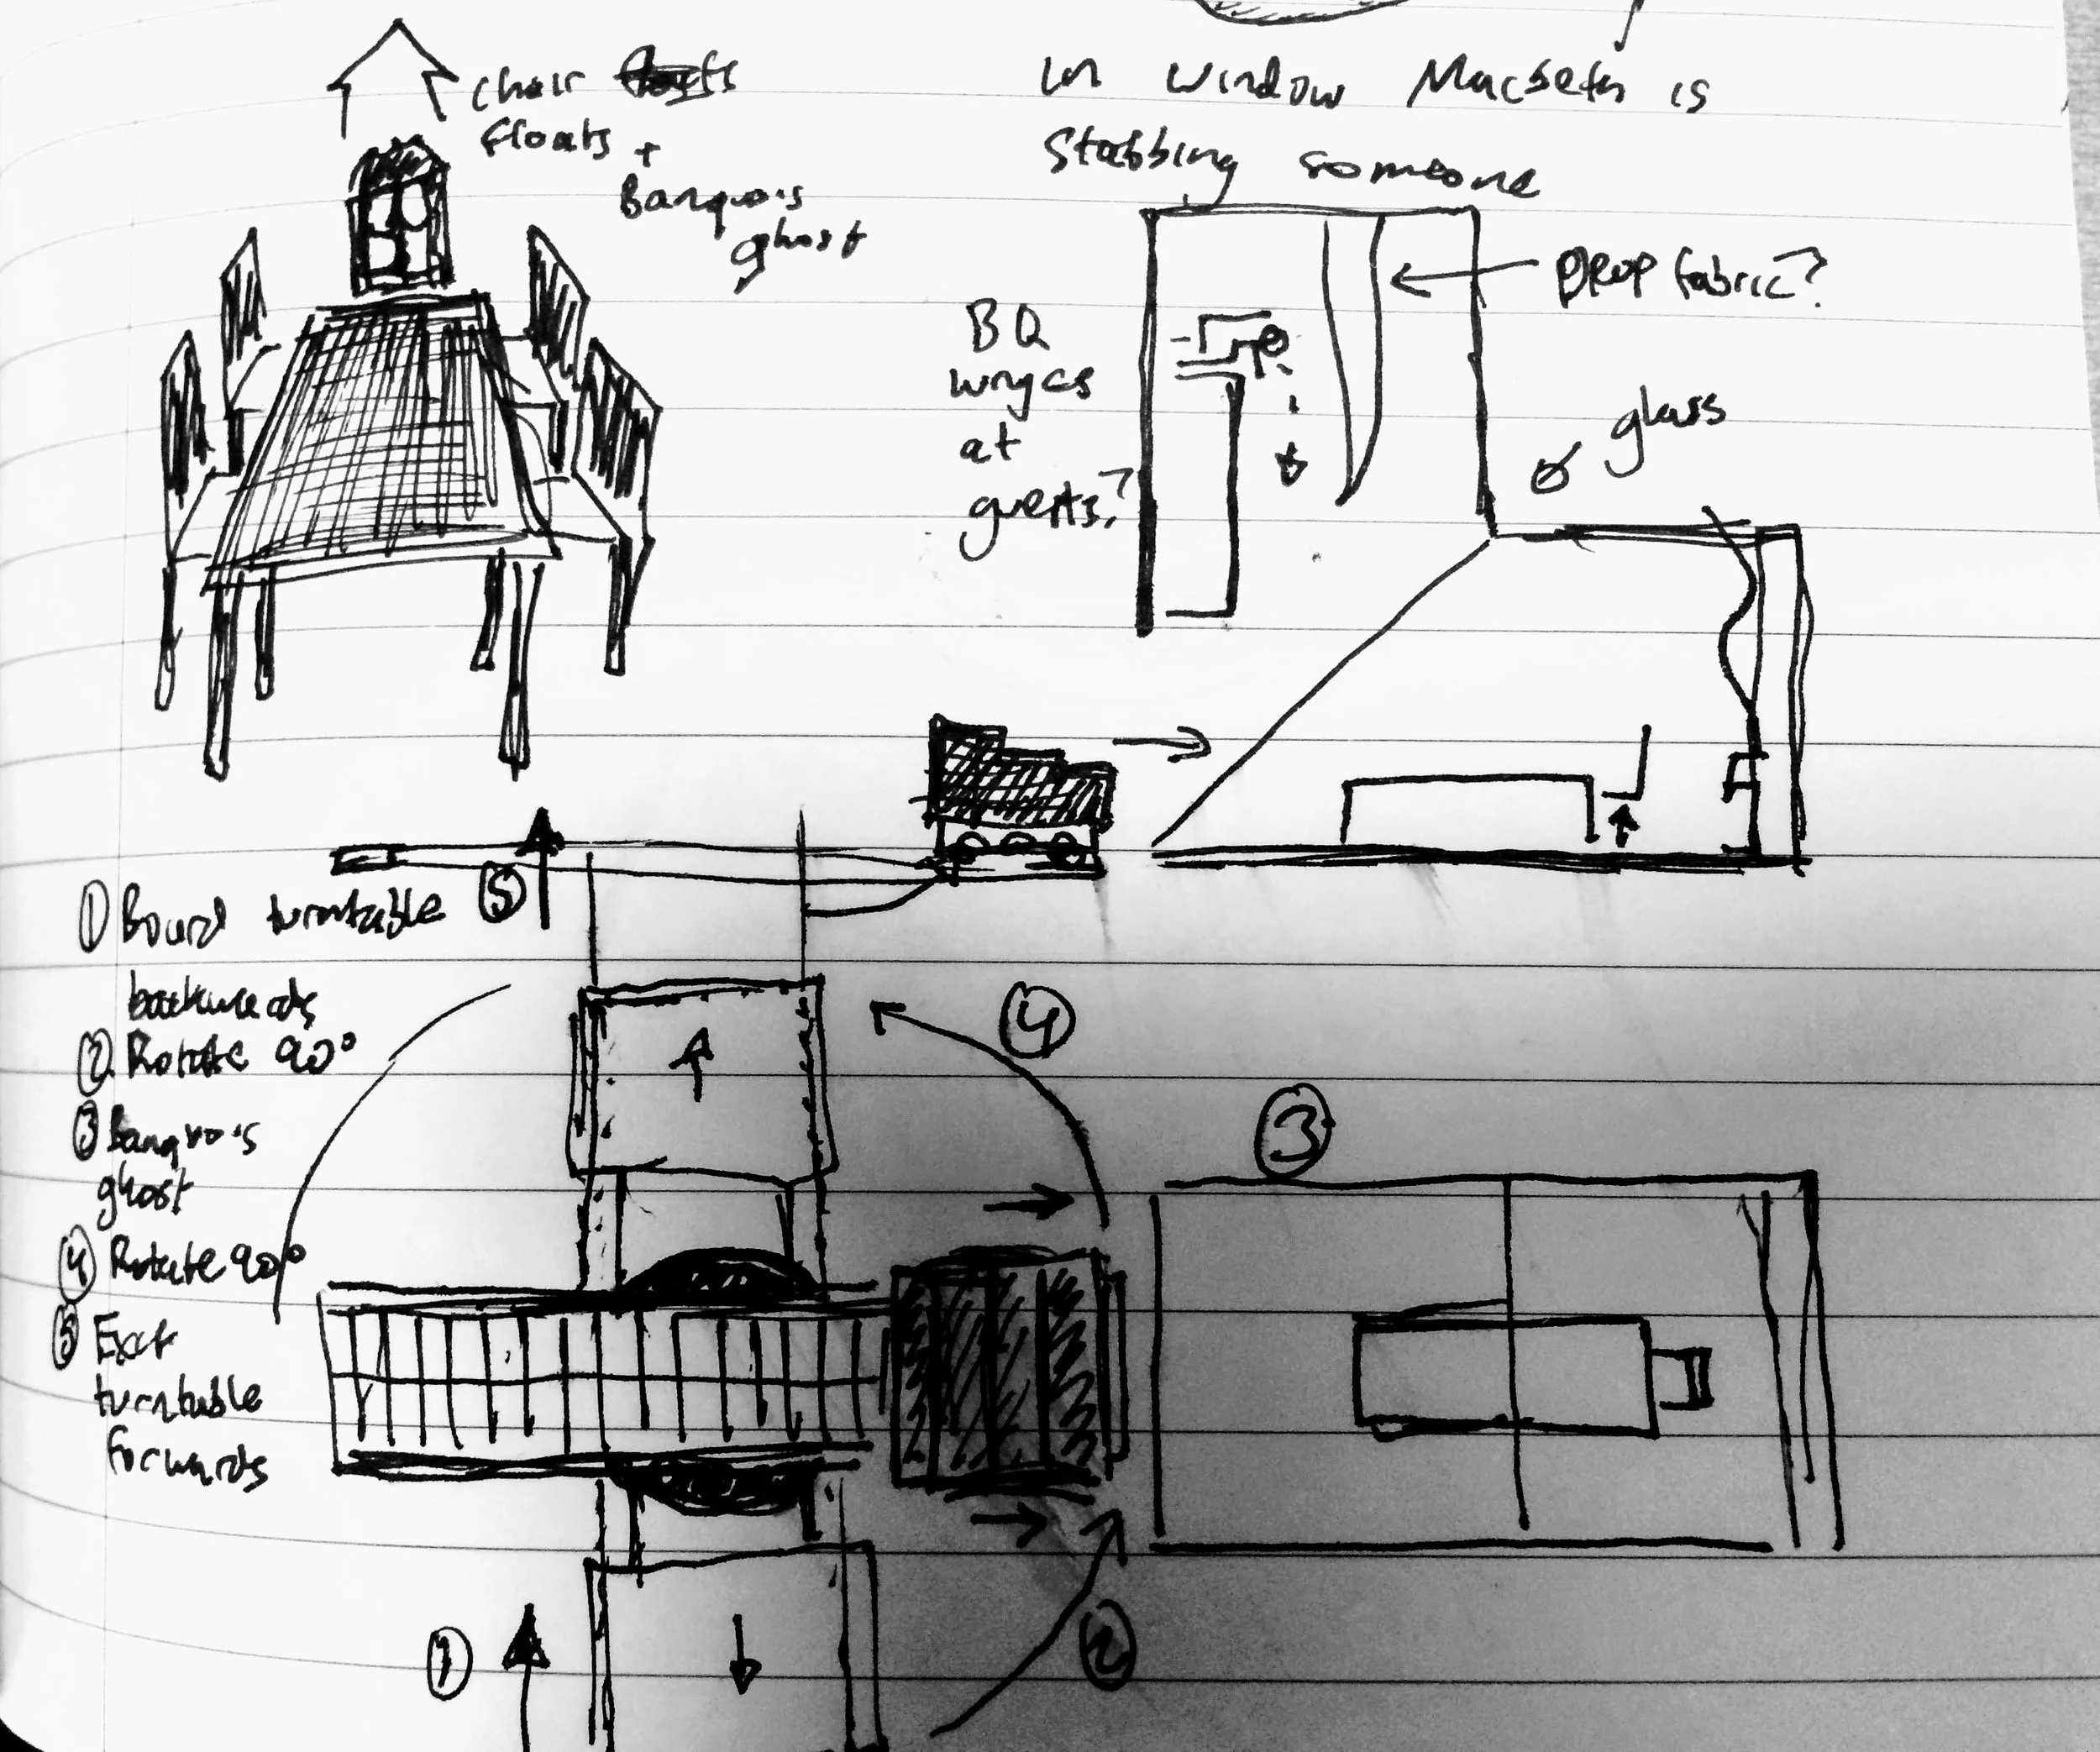 chair
floats +
Banquo's
ghost
in window Macbeth is
stabbing someone
Drop fabric?
BQ
at
guests?
glass
① Board turntable
backwards
② Rotate 90°
③ Banquo's
ghost
④ Rotate 90°
⑤ Exit
turntable
forwards
⑤
④
③
①
②